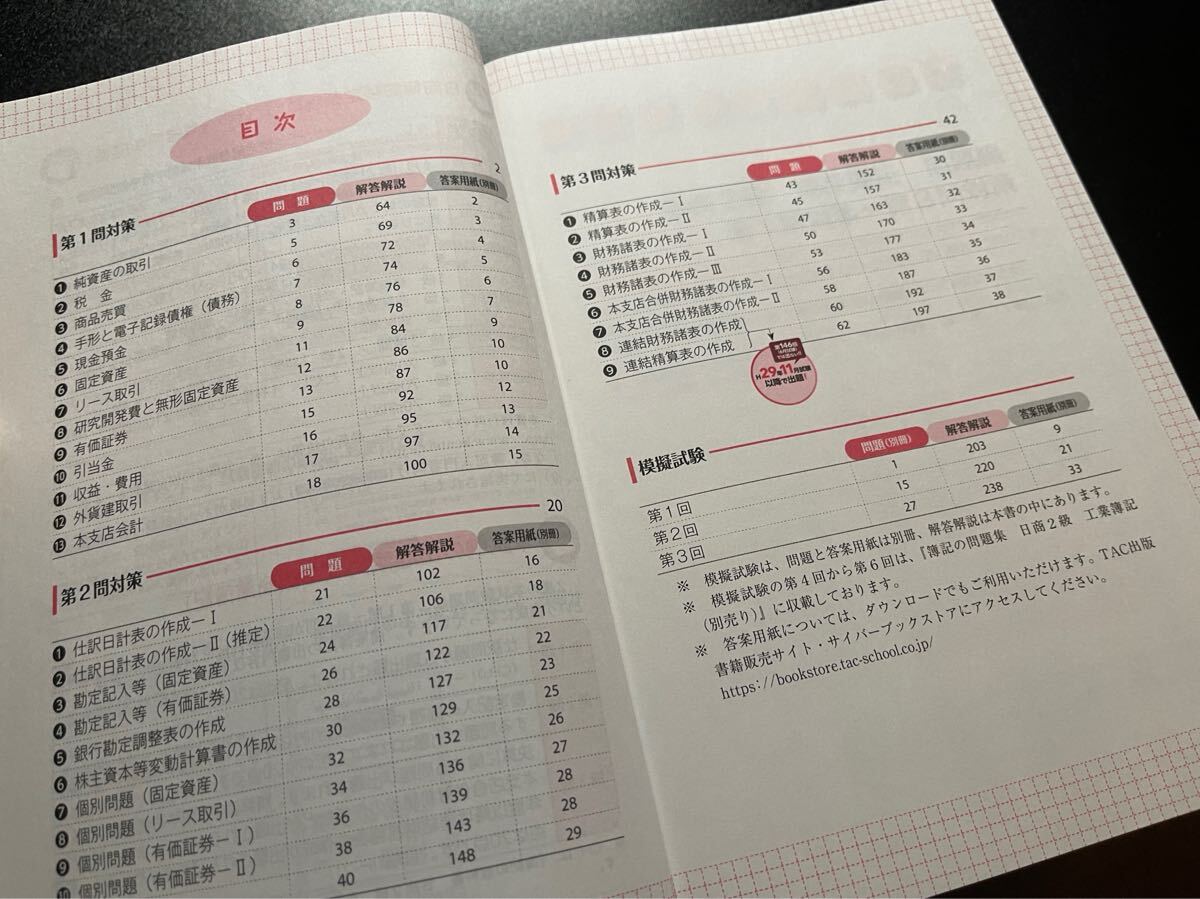 目次
第1問対策 2
問題 解答解説 答案用紙(別冊)
❶ 純資産の取引 3 64 2
❷ 税 金 5 69 3
❸ 商品売買 6 72 4
❹ 手形と電子記録債権(債務) 7 74 5
❺ 現金預金 8 76 6
❻ 固定資産 9 78 7
❼ リース取引 11 84 9
❽ 研究開発費と無形固定資産 12 86 10
❾ 有価証券 13 87 10
❿ 引当金 15 92 12
⓫ 収益・費用 16 95 13
⓬ 外貨建取引 17 97 14
⓭ 本支店会計 18 100 15
第2問対策 20
問題 解答解説 答案用紙(別冊)
❶ 仕訳日計表の作成ーⅠ 21 102 16
❷ 仕訳日計表の作成ーⅡ(推定) 22 106 18
❸ 勘定記入等(固定資産) 24 117 21
❹ 勘定記入等(有価証券) 26 122 22
❺ 銀行勘定調整表の作成 28 127 23
❻ 株主資本等変動計算書の作成 30 129 25
❼ 個別問題(固定資産) 32 132 26
❽ 個別問題(リース取引) 34 136 27
❾ 個別問題(有価証券ーⅠ) 36 139 28
❿ 個別問題(有価証券ーⅡ) 38 143 28
40 148 29
第3問対策 42
問題 解答解説 答案用紙(別冊)
❶ 精算表の作成ーⅠ 43 152 30
❷ 精算表の作成ーⅡ 45 157 31
❸ 財務諸表の作成ーⅠ 47 163 32
❹ 財務諸表の作成ーⅡ 50 170 33
❺ 財務諸表の作成ーⅢ 53 177 34
❻ 本支店合併財務諸表の作成ーⅠ 56 183 35
❼ 本支店合併財務諸表の作成ーⅡ 58 187 36
❽ 連結財務諸表の作成 60 192 37
❾ 連結精算表の作成 62 197 38
第146回
H29年11月試験
以降で出題!
模擬試験
問題(別冊) 解答解説 答案用紙(別冊)
第1回 1 203 9
第2回 15 220 21
第3回 27 238 33
※ 模擬試験は、問題と答案用紙は別冊、解答解説は本書の中にあります。
※ 模擬試験の第4回から第6回は、『簿記の問題集 日商2級 工業簿記
(別売り)』に収載しております。
※ 答案用紙については、ダウンロードでもご利用いただけます。TAC出版
書籍販売サイト・サイバーブックストアにアクセスしてください。
https://bookstore.tac-school.co.jp/